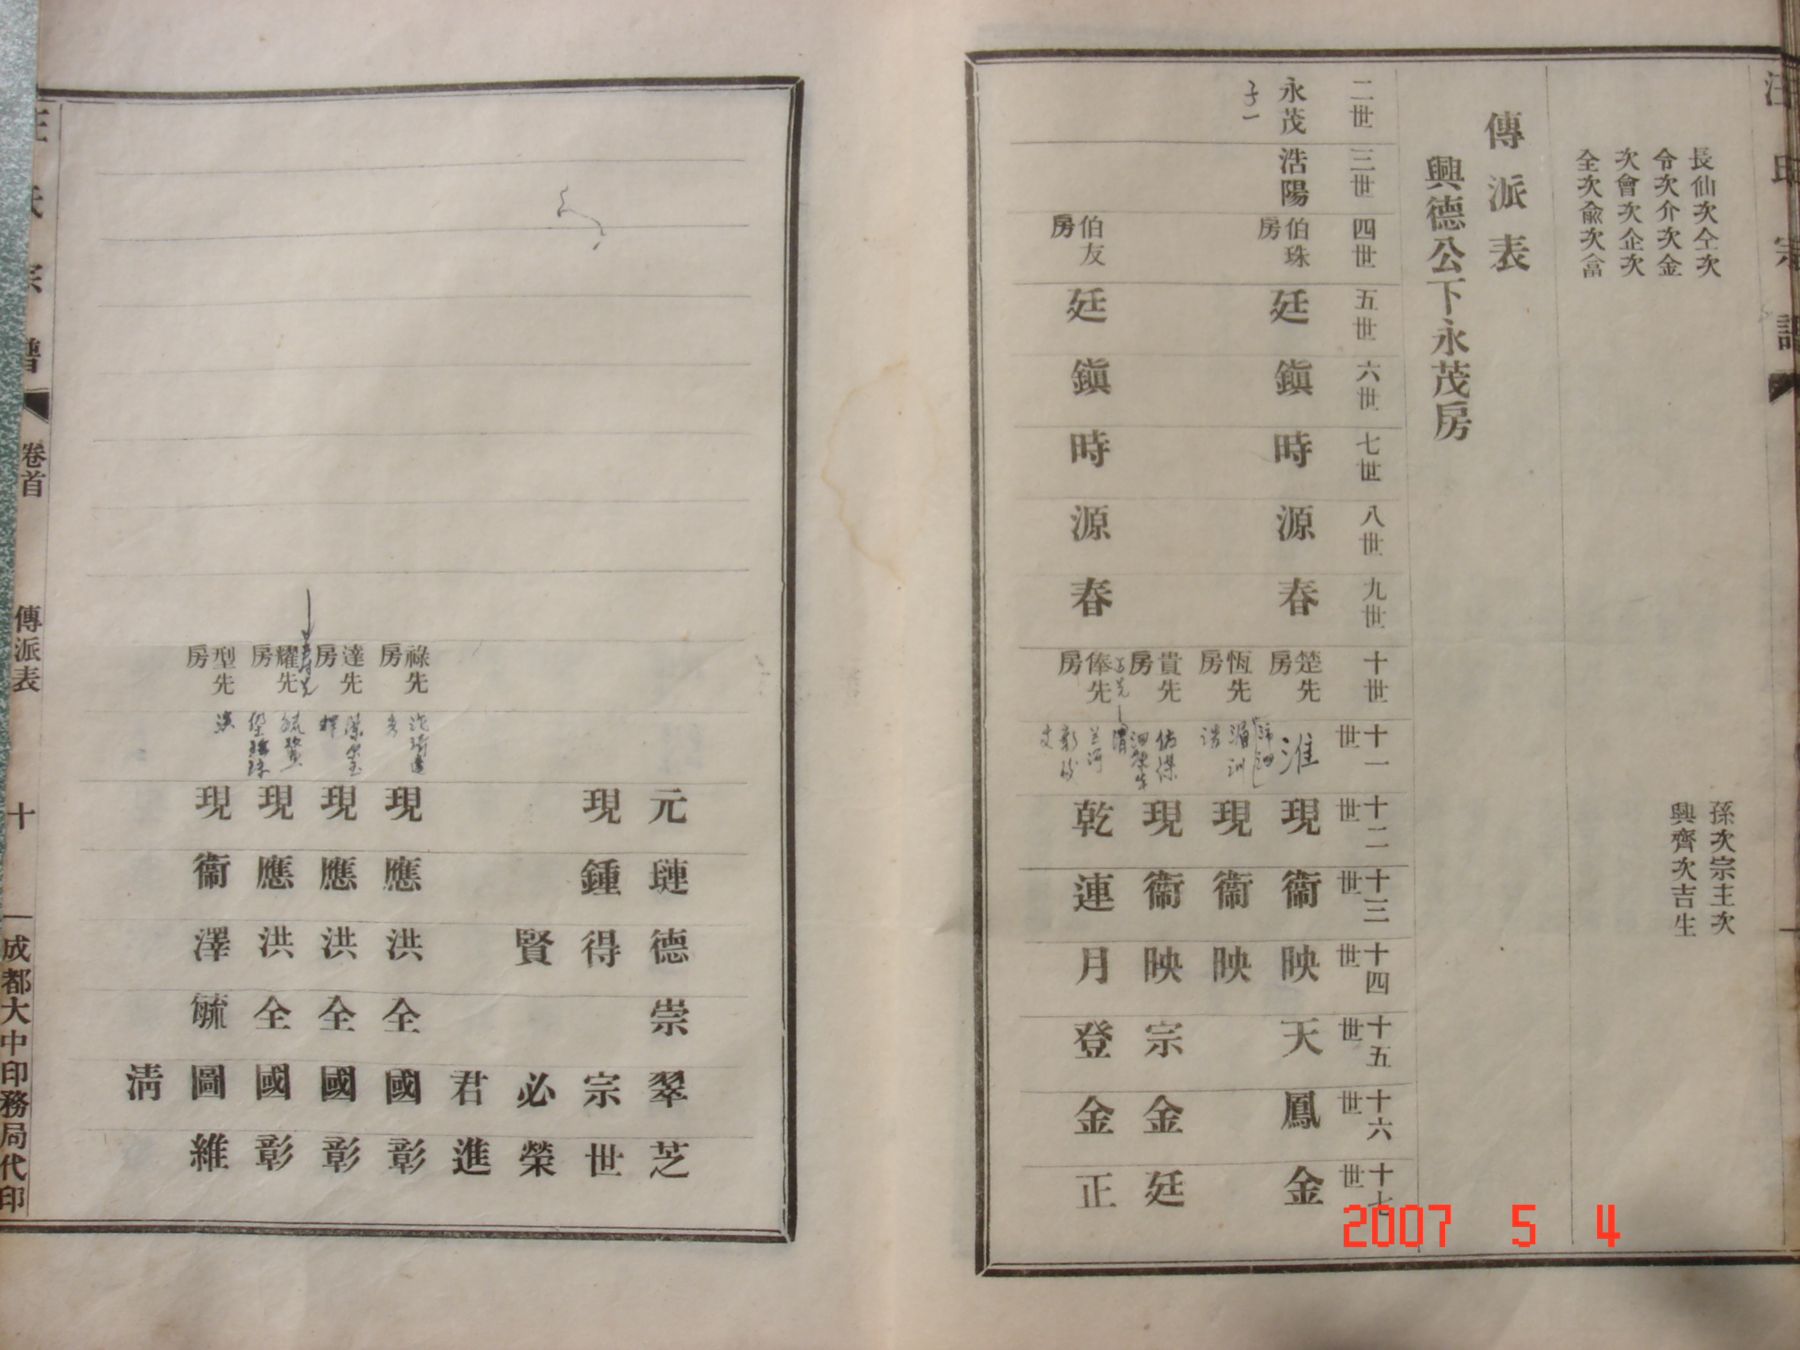 長仙次仝次
令次介次金
次會次企次
全次俞次畣
孫次宗主次
興齊次吉生
傳派表
興德公下永茂房
二世
三世
四世
五世
六世
七世
八世
九世
十世
十一世
十二世
十三世
十四世
十五世
十六世
十七世
永茂
浩陽
伯珠房
廷
鎭
時
源
春
楚先房
淮
現
衞
映
天
鳳
金
子一
恆先房
現
衞
映
貴先房
現
衞
映
宗
金
廷
伯友房
廷
鎭
時
源
春
俸先房
乾
連
月
登
金
正
元
璉
德
崇
翠
芝
現
鍾
得
宗
世
賢
必
榮
君
進
祿先房
現
應
洪
全
國
彰
達先房
現
應
洪
全
國
彰
耀先房
現
應
洪
全
國
彰
型先房
現
衞
澤
毓
圖
維
清
卷首
傳派表
十
成都大中印務局代印
2007 5 4